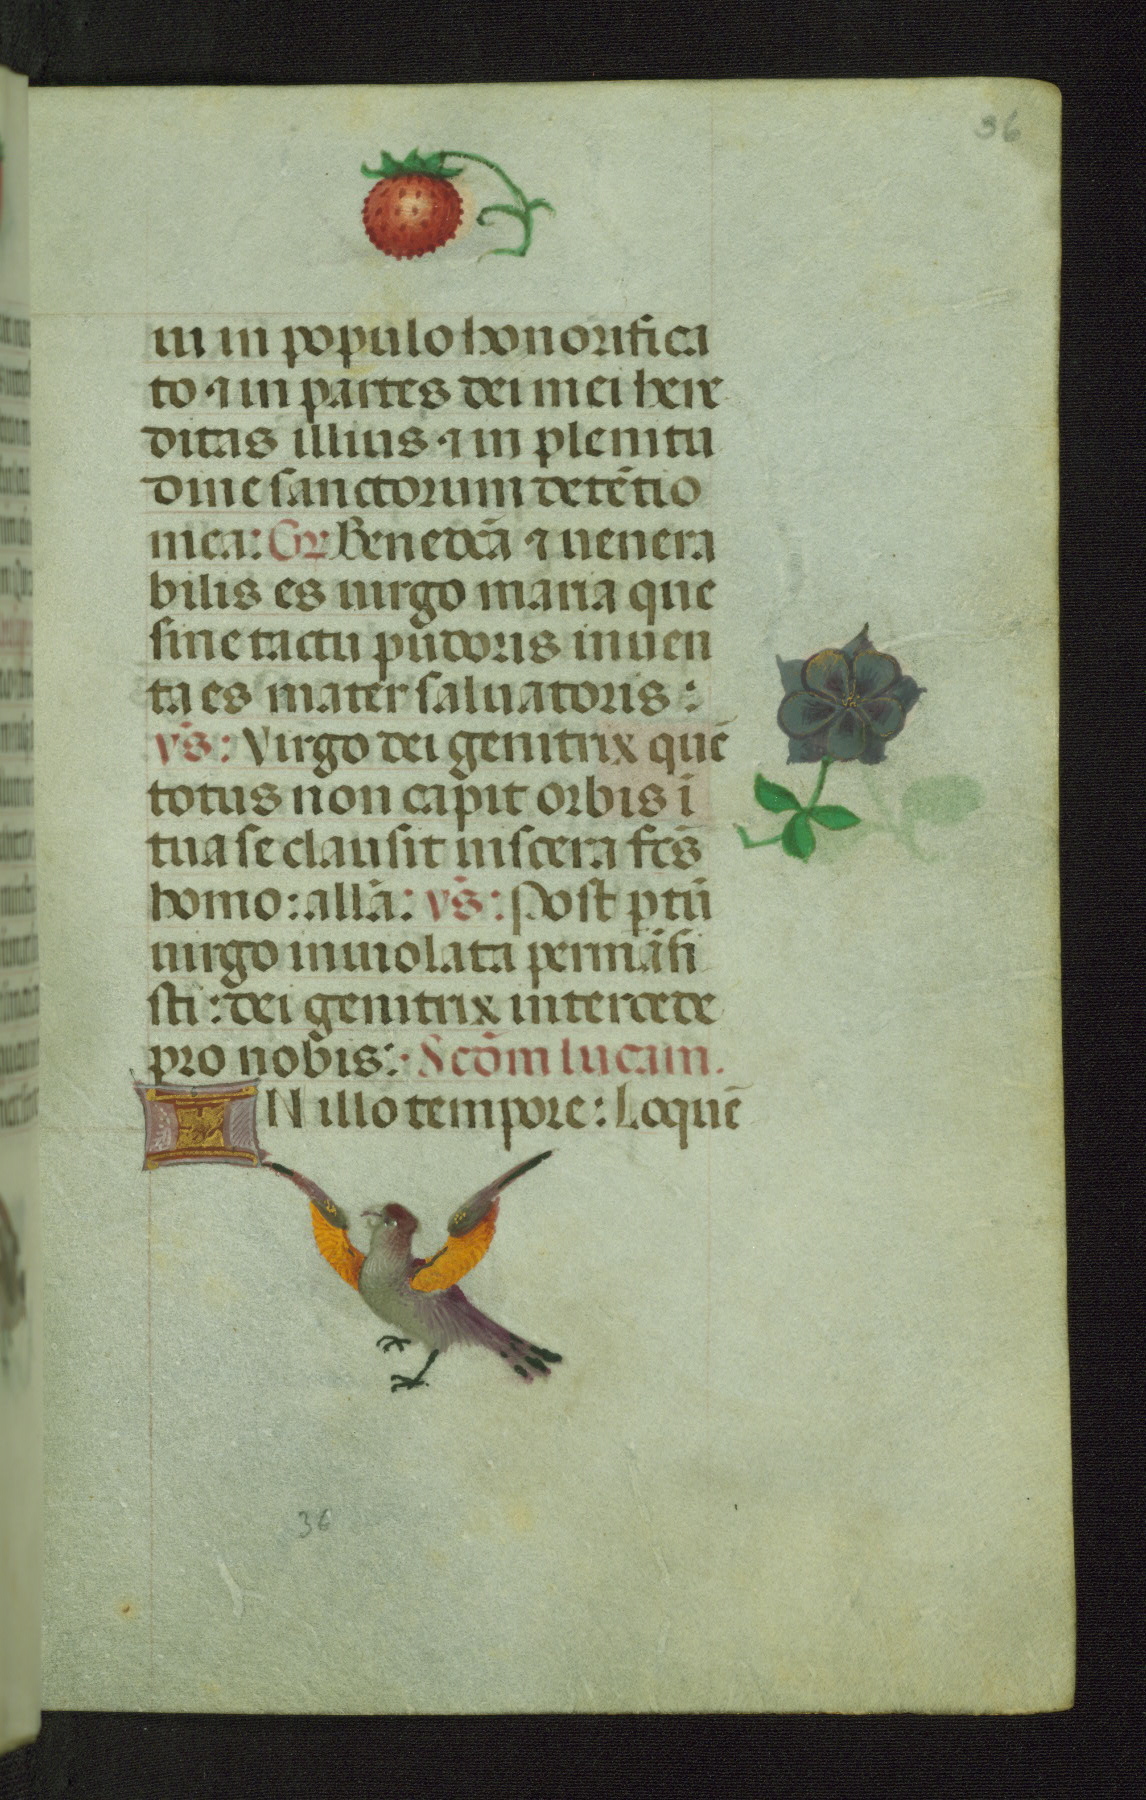 36
ui in populo honorifica
to · ⁊ in partes dei mei here
ditas illius · ⁊ in plenitu
dine sanctorum detētio
mea: Gr: Benedc̄a ⁊ uenera
bilis es uirgo maria que
sine tactu pudoris inuen
ta es mater saluatoris :
vs̄: Virgo dei genitrix quē
totus non capit orbis ī
tua se clausit uiscera fc̄s
homo: allā: vs̄: Post ꝑtū
uirgo inuiolata permāsi
sti : dei genitrix intercede
pro nobis: Scd̄m lucam.
IN illo tempore : Loquē
36